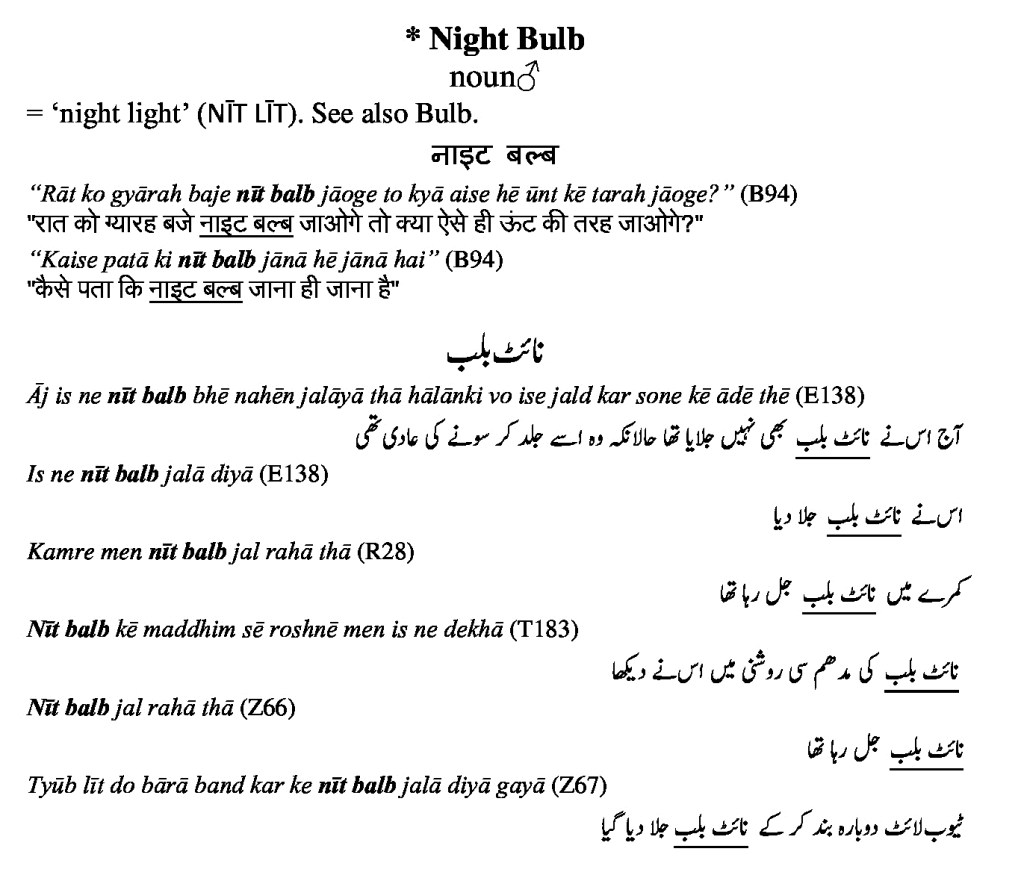 * Night Bulb
noun♂
= ‘night light’ (NĪT LĪT). See also Bulb.
नाइट बल्ब
“Rāt ko gyārah baje nīt balb jāoge to kyā aise hē ūnt kē tarah jāoge?” (B94)
"रात को ग्यारह बजे नाइट बल्ब जाओगे तो क्या ऐसे ही ऊंट की तरह जाओगे?"
“Kaise patā ki nīt balb jānā hē jānā hai” (B94)
"कैसे पता कि नाइट बल्ब जाना ही जाना है"
نائٹ بلب
Āj is ne nīt balb bhē nahēn jalāyā thā hālānki vo ise jald kar sone kē ādē thē (E138)
آج اس نے نائٹ بلب بھی نہیں جلایا تھا حالانکہ وہ اسے جلد کر سونے کی عادی تھی
Is ne nīt balb jalā diyā (E138)
اس نے نائٹ بلب جلا دیا
Kamre men nīt balb jal rahā thā (R28)
کمرے میں نائٹ بلب جل رہا تھا
Nīt balb kē maddhim sē roshnē men is ne dekhā (T183)
نائٹ بلب کی مدھم سی روشنی میں اس نے دیکھا
Nīt balb jal rahā thā (Z66)
نائٹ بلب جل رہا تھا
Tyūb līt do bārā band kar ke nīt balb jalā diyā gayā (Z67)
ٹیوب لائٹ دوبارہ بند کر کے نائٹ بلب جلا دیا گیا